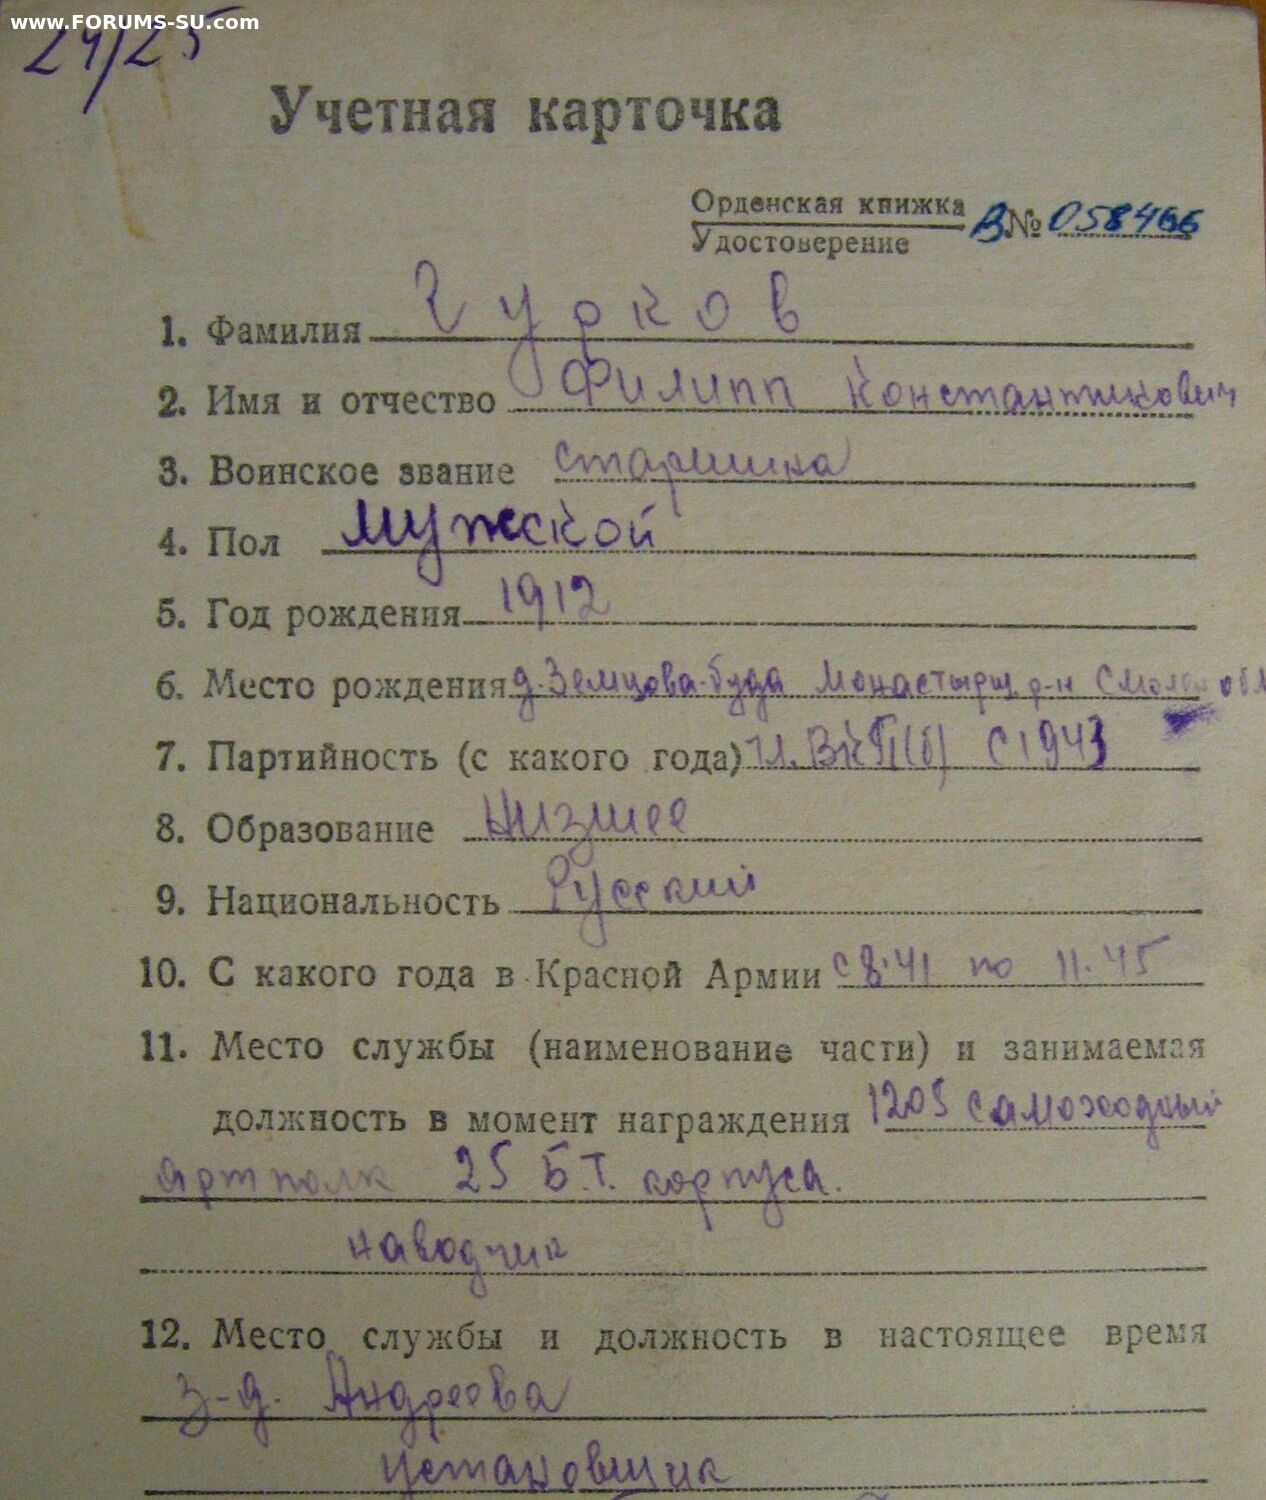 www.FORUMS-SU.com
24/25
Учетная карточка
Орденская книжка
Удостоверение
В № 058466
1. Фамилия Чурков
2. Имя и отчество Филипп Константинович
3. Воинское звание старшина
4. Пол мужской
5. Год рождения 1912
6. Место рождения д. Земцова-буда Монастырщ. р-н Смолен обл
7. Партийность (с какого года) чл. ВКП(б) с 1943
8. Образование Низшее
9. Национальность Русский
10. С какого года в Красной Армии с 8.41 по 11.45
11. Место службы (наименование части) и занимаемая
должность в момент награждения 1205 самоходный
артполк 25 Б.Т. корпуса.
наводчик
12. Место службы и должность в настоящее время
з-д. Андреева
установщик